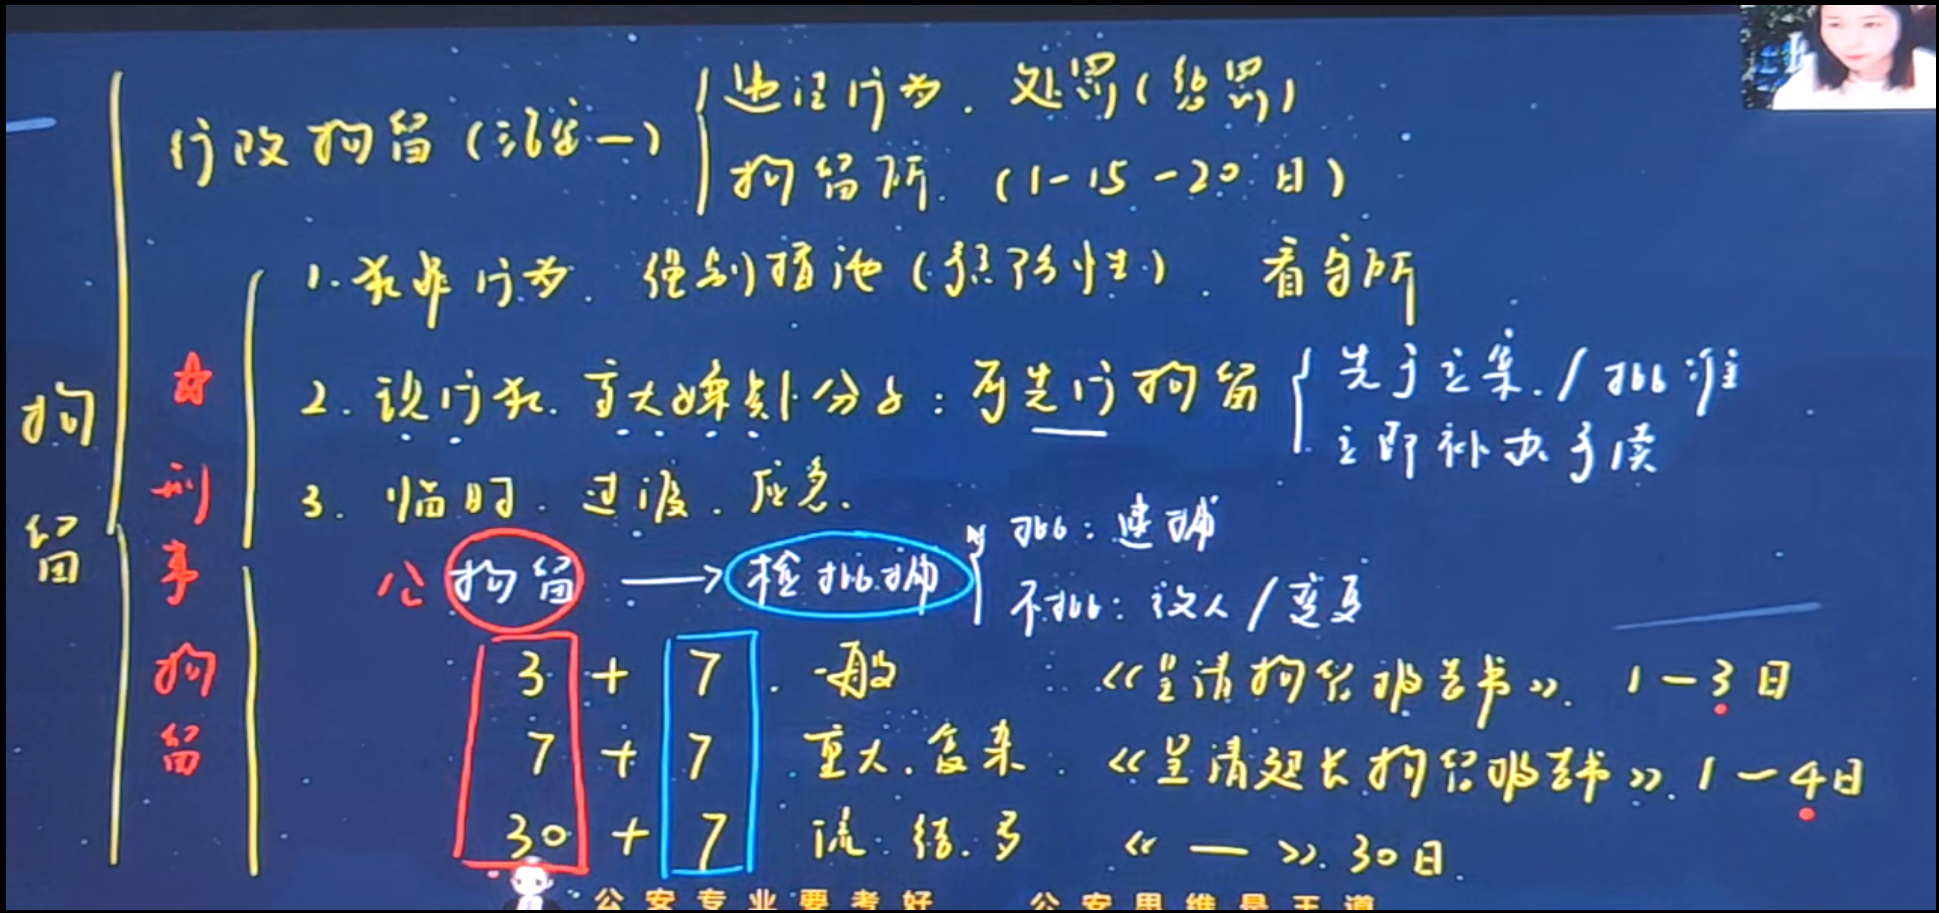 拘留
行政拘留(治安一)
违法行为. 处罚(惩罚)
拘留所. (1-15-20日)
☆刑事拘留
1. 犯罪行为. 强制措施(预防性). 看守所
2. 现行犯. 重大嫌疑分子: 可先行拘留
先于立案./批准
立即补办手续
3. 临时. 过渡. 应急.
公 拘留 → 检批捕
批: 逮捕
不批: 放人/变更
3 + 7. 一般 《呈请拘留报告书》. 1-3日
7 + 7 . 重大. 复杂. 《呈请延长拘留报告书》. 1-4日
30 + 7 流. 结. 多 《 — 》. 30日.
公安专业要考好 公安思维是王道